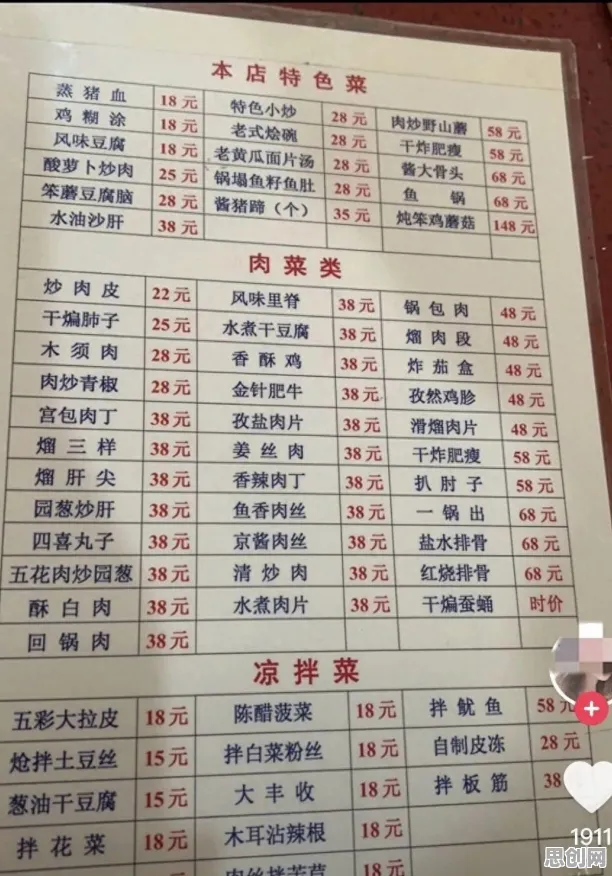 本店特色菜
蒸猪血 18元 特色小炒 28元 肉炒野山蘑 58元
鸡糊涂 18元 老式烩碗 28元 干炸肥瘦 58元
风味豆腐 18元 老黄瓜面片汤 28元 酱大骨头 68元
酸萝卜炒肉 25元 锅塌鱼籽鱼肚 28元 鱼锅 68元
笨蘑豆腐脑 28元 酱猪蹄（个） 35元 炖笨鸡蘑菇 148元
水油沙肝 38元
肉菜类
炒肉皮 22元 风味里脊 38元 锅包肉 48元
干煸肺子 25元 水煮干豆腐 38元 熘肉段 48元
木须肉 28元 香酥鸡 38元 炸茄盒 48元
肉炒青椒 28元 金针肥牛 38元 孜然鸡胗 48元
宫包肉丁 38元 孜盐肉片 38元 滑熘肉片 48元
熘三样 38元 姜丝肉 38元 干炸肥瘦 58元
熘肝尖 38元 香辣肉丁 38元 扒肘子 58元
园葱炒肝 38元 鱼香肉丝 38元 一锅出 68元
四喜丸子 38元 京酱肉丝 38元 盐水排骨 68元
五花肉炒园葱 38元 清炒肉 38元 红烧排骨 68元
酥白肉 38元 水煮肉片 38元 干煸蚕蛹 时价
回锅肉 38元
凉拌菜
五彩大拉皮 18元 陈醋菠菜 18元 拌鱿鱼 58元
炝拌土豆丝 15元 拌白菜粉丝 18元 自制皮冻 28元
葱油干豆腐 15元 大丰收 18元 拌板筋 38
拌花菜 18元 木耳沾辣根 18元
18元
1911
思创网